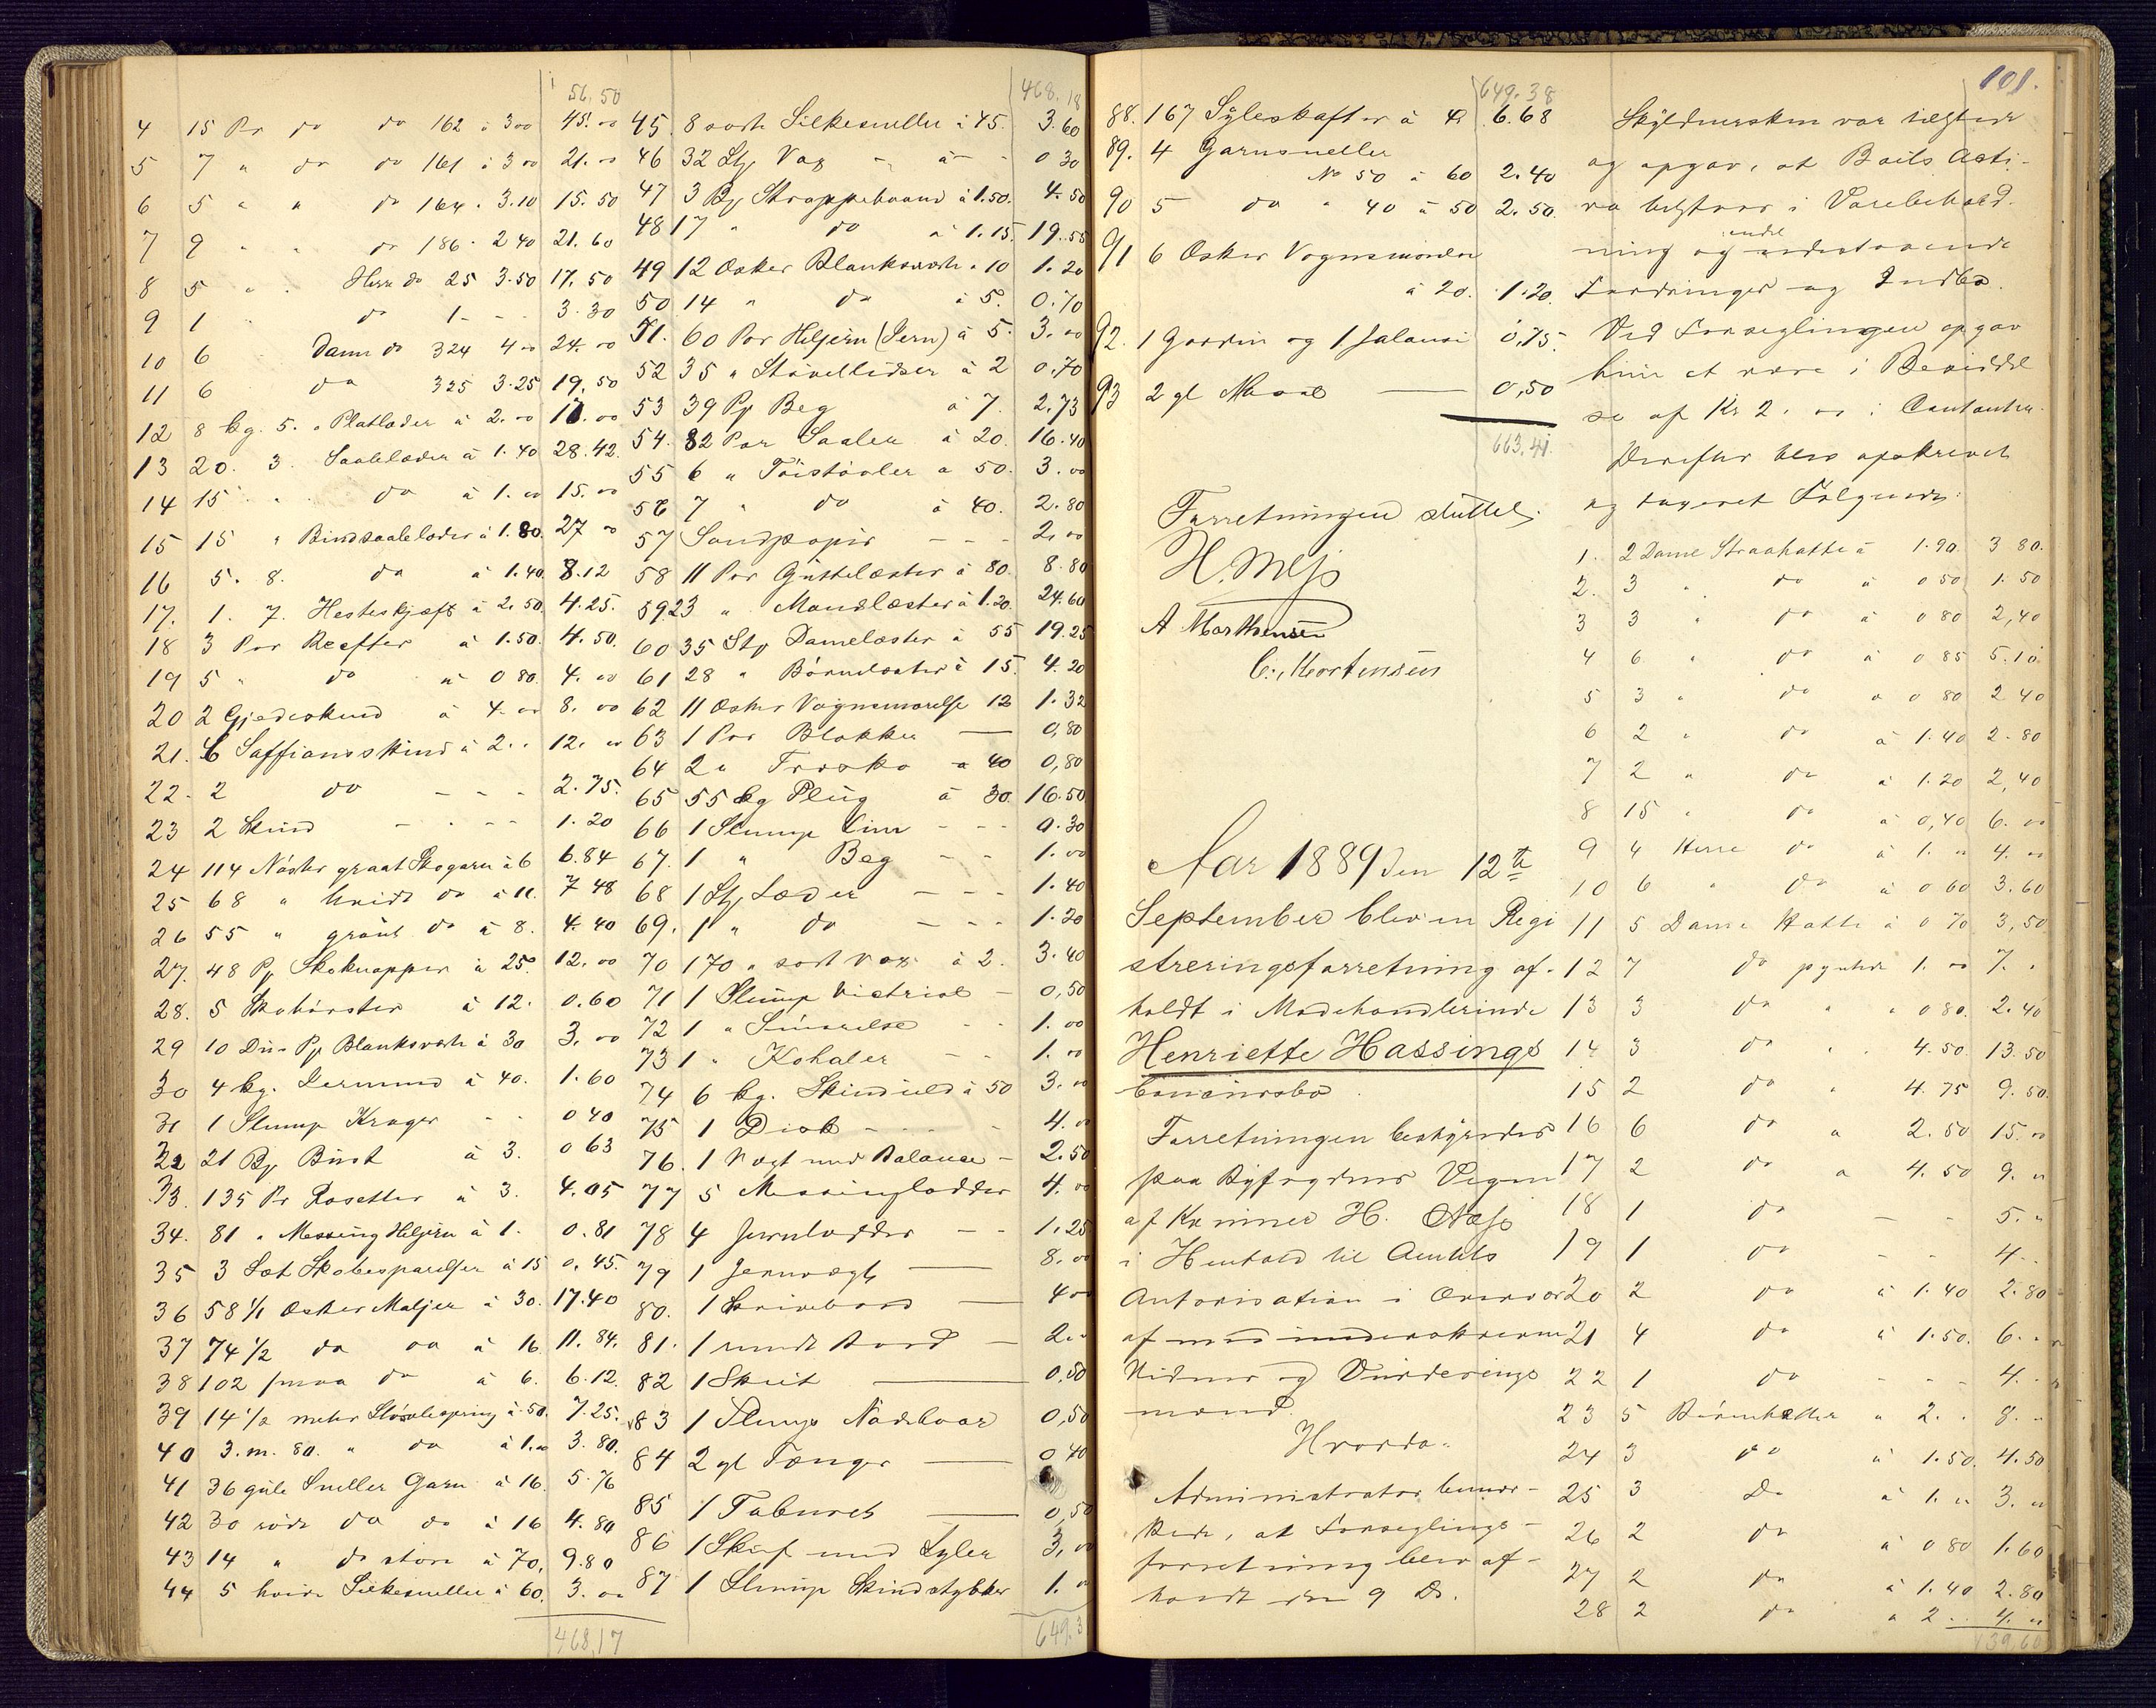 56.50
4 15 Pr do do 162 à 3 00 45. 00
5 7 " do do 161 à 3 00 21. 00
6 5 " " do 164 " 3.10 15. 50
7 9 " " do 186 " 2 40 21. 60
8 5 " " Herre do 25 3.50 17. 50
9 1 " do 1 - - 3. 30
10 6 Dame do 324 4 00 24. 00
11 6 do 325 3.25 19. 50
12 8 kg. 5. " Platlæder à 2. 00 17. 00
13 20. 3. Saalelæder à 1. 40 28. 42.
14 15 " " do à 1. 00 15. 00
15 15 " Bindsaalelæder à 1. 80. 27 00
16 5. 8. do à 1. 40. 8. 12
17. 1. 7. Hesteskjæft à 2. 50. 4. 25.
18 3 Par Reefter à 1. 50. 4. 50.
19 5 " do à 0 80. 4. 00
20 2 Gjedeskind à 4. 00 8. 00
21. 6 Saffiansskind à 2. " 12. 00
22. 2 do - - - 2. 75.
23 2 Skind - - - 1. 20
24 114 Nøster graat Skogarn à 6 6. 84
25 68 " hvidt do à 11. 7 48
26 55 " grønt do à 8. 4. 40
27. 48 Pk Skoknapper à 25 12. 00
28. 5 Skobørster à 12. 0. 60
29 10 Dus Pk Blanksværte à 30 3. 00
30 4 kg. à 40. 1. 60
31 1 Slump Kroger - - 0 40
32 21 Bg Bust à 3. 0 63
33. 135 Pr Rosetter à 3. 4. 05
34. 81 " Messing Heljern à 1. 0. 81
35 3 Sæt Skobesparelser à 15 0. 45.
36 58 1/1 Æsker Maljer à 30. 17. 40
37 74 1/2 do do à 16 11. 84.
38 102 smaa do à 6. 6. 12.
39 14 1/2 meter à 50. 7. 25.
40 3. m. 80. " do à 1. 00 3. 80.
41 36 gule Sneller Garn à 16. 5. 76
42 30 røde do do à 16 4. 80
43 14 " do store à 70. 9. 80
44 5 hvide Silkesneller à 60. 3. 00
468,17
468. 18
45. 8 sorte Silkesneller à 45. 3. 60
46 32 Stk Vox - à - - 0 30
47 3 Bg Stroppebaand à 1. 50. 4. 50
48 17 " do à 1. 15. 19. 55
49 12 Æsker Blanksværte à 10 1. 20
50 14 " do à 5. 0. 70
51. 60 Par Heljern (Jern) à 5. 3. 00
52 35 " Støvellidser à 2 0. 70
53 39 Pk Beg à 7. 2. 73
54. 82 Par Saaler à 20. 16. 40
55 6 " Tøistøvler à 50. 3. 00
56 7 " do à 40. 2. 80
57 Sandpapir - - - 2. 00
58 11 Par Guttelæster à 80. 8. 80
59 23 " Mandlæster à 1. 20. 24. 60
60 35 Stk Damelæster à 55 19. 25
61 28 " Børnelæster à 15 4. 20
62 11 Æsker Vognsmørelse 12 1. 32
63 1 Par Blokker — 0, 80
64 2 " Træsko à 40 0, 80
65 55 kg Pløg à 30. 16. 50
66 1 Slump Lim - - - 0. 30
67. 1 " Beg - - 1. 00
68 1 Stk Læder - - - 1. 40
69. 1 " do - - - 1. 20
70 170 " sort Vox à 2. 3. 40
71 1 Slump Victriol - 0, 50
72 1 " Smørelse - - 1. 00
73 1 " Kohaler - - 1. 00
74 6 kg. Skinduld à 50 3. 00
75 1 Disk - - - 4. 00
76. 1 Vægt med Balance - 2. 50
77 5 Messinglodder 4. 00
78 4 Jernlodder - - 1. 25
79 1 Jernvægt — 8. 00
80. 1 Skrivebord — 4 00
81. 1 rundt Bord — 2. "
82 1 Skilt — 0, 50
83 1 Slump Nødeboar 0, 50
84 2 gl Tænger — 0 40
85 1 Taburet — 0, 50
86 1 Skuf med Syler 3, 00
87 1 Slump Skindstykker 1. 00
649. 3
649. 38
88. 167 Syleskafter à 4 6. 68
89. 4 Garnsneller
No 50 à 60 2. 40
90 5 do " 40 à 50 2. 50.
91 6 Æsker Vognsmørelse
à 20. 1. 20.
92. 1 Gardin og 1 Jalousi 0, 75.
93 2 gl — 0, 50
663. 41.
Forretningen sluttet.
H. Næss
A Marthensen
C. Mortensen
Aar 1889 Den 12te
September blev en Regi
streringsforretning af-
holdt i Modehandlerinde
Henriette Hassings
Concursbo.
Forretningen bestyredes
paa Byfogdens Vegne
af Kæmner H. Næss
i Henhold til Amtets
Autorisation i Overvær
af med underskrevne
Vidner og Vurderings
mænd.
Hvorda.
Administrator bemær-
kede, at Forseglings-
forretning blev af-
holdt den 9 Ds.
101.
Skyldnersken var tilstede
og opgav, at Boets Acti-
va bestaar i Varebehold-
ning og endel udestaaende
Fordringer og Indbo.
Ved Forseglingen opgav
hun at være i Besiddel
se af Kr 2. 00 i Contanter.
Derefter blev opskrevet
og taxeret Følgende:
1. 2 Dame Straahatte à 1. 90. 3 80.
2. 3 " do à 0 50 1. 50
3 3 " do à 0 80 2, 40
4 6 " do à 0 85 5. 10
5 3 " do à 0 80 2 40
6 2 " do à 1. 40 2. 80
7 2 " do à 1. 20 2, 40
8 15 " do à 0, 40 6. 00
9 4 Herre do à 1. " 4. 00
10 6 " do à 0 60 3. 60
11 5 Dame Hatte à 0 70 3, 50
12 7 do pyntede 1. 00 7. "
13 3 do " " 0 80. 2. 40
14 3 do " " 4. 50. 13. 50
15 2 do " 4. 75 9. 50.
16 6 do " 2. 50 15. 00
17 2 do " 4. 50 9. "
18 1 do - - 5. "
19 1 do - - 4. "
20 2 do à 1. 40 2. 80
21 4 do à 1. 50. 6. "
22 1 do - - - 4. "
23 5 Børnehatter " 2. " 8. "
24 3 do à 1. 50. 4. 50
25 3 Do à 1. " 3. "
26 2 do à 0 80 1. 60
27 2 do à 1. 40 2. 80
28 2 do à 2. " 4. "
139. 60